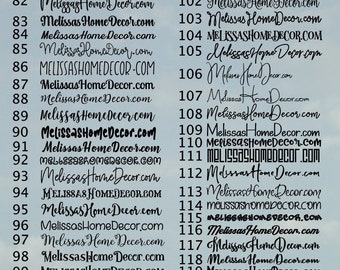 82 MelissasHomeDecor.com
83 MelissasHomeDecor.com
84 MelissasHomeDecor.com
85 MelissasHomeDecor.com
86 MELISSASHOMEDECOR.COM
87 MelissasHomeDecor.com
88 MelissasHomeDecor.com
89 MelissasHomeDecor.com
90 MelissasHomeDecor.com
91 MelissasHomeDecor.com
92 MELISSASHOMEDECOR.COM
93 MelissasHomeDecor.com
94 MelissasHomeDecor.com
95 MelissasHomeDecor.com
96 MelissasHomeDecor.com
97 MelissasHomeDecor.com
98 MelissasHomeDecor.com
99 MelissasHomeDecor.com
102 MelissasHomeDecor.com
103 MelissasHomeDecor.com
104 MelissasHomeDecor.com
105 MelissasHomeDecor.com
106 MelissasHomeDecor.com
107 MelissasHomeDecor.com
108 MelissasHomeDecor.com
109 MelissasHomeDecor.com
110 MelissasHomeDecor.com
111 MELISSASHOMEDECOR.COM
112 MelissasHomeDecor.com
113 MelissasHomeDecor.com
114 MelissasHomeDecor.com
115 MelissasHomeDecor.com
116 MelissasHomeDecor.com
117 MelissasHomeDecor.com
118 MelissasHomeDecor.com